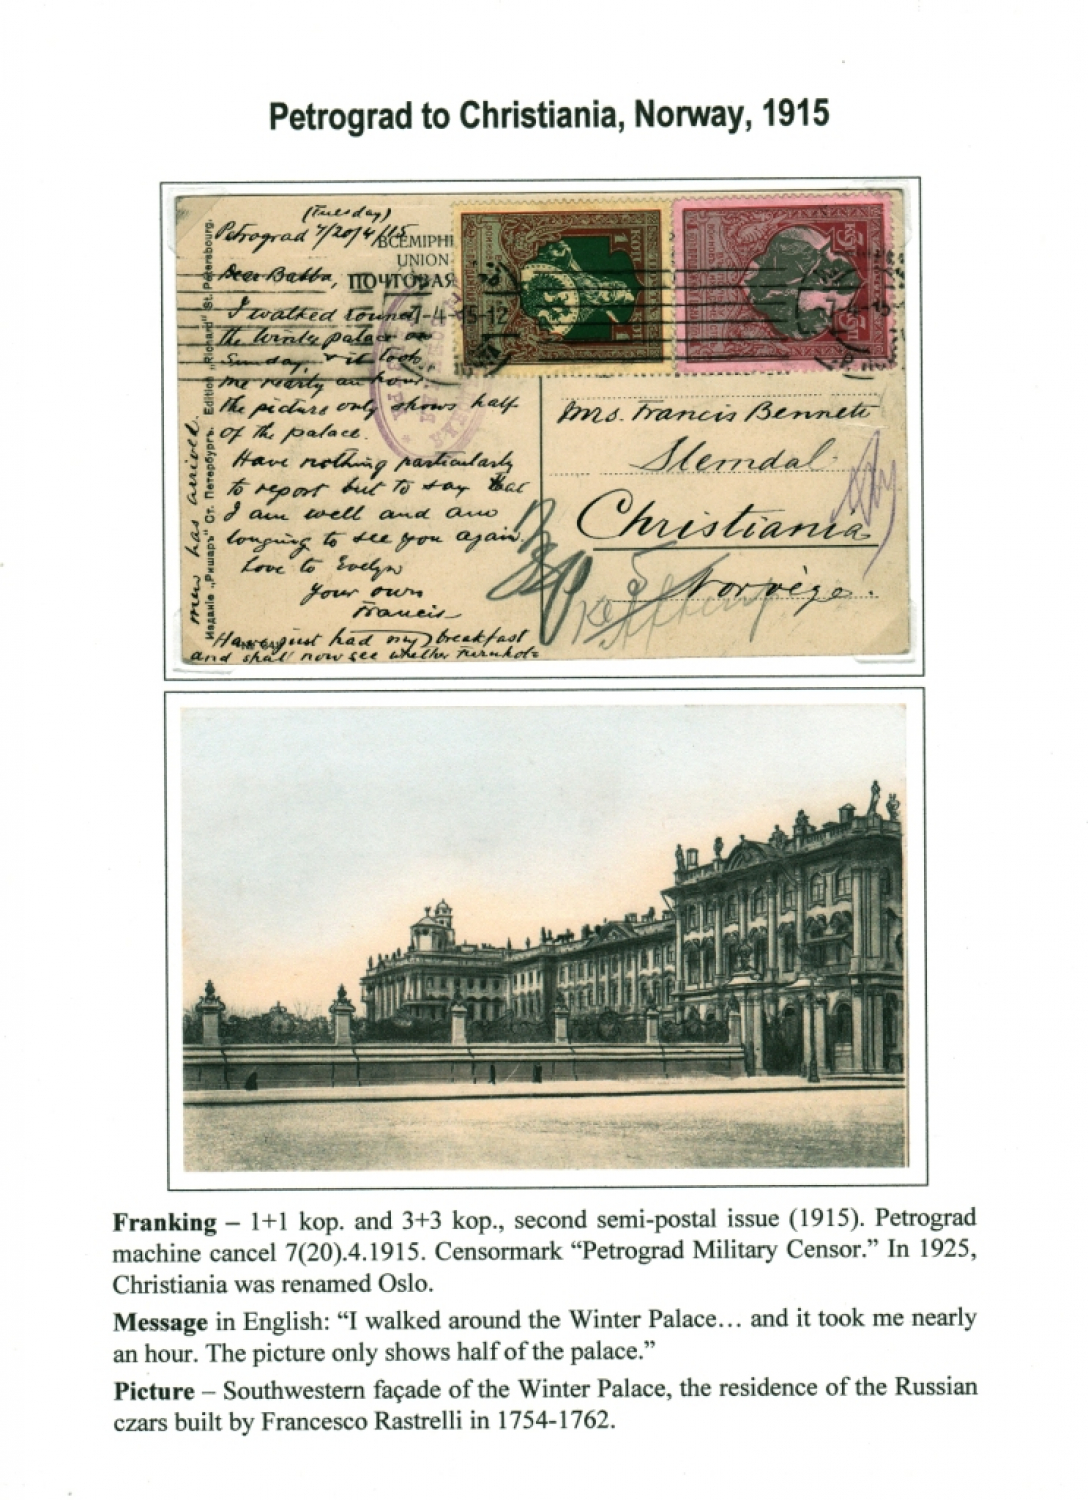 Petrograd to Christiania, Norway, 1915
(Tuesday)
Petrograd 7/20/4/15
ВСЕМІРН
UNION
ПОЧТОВАЯ
Dear Babba,
I walked round
the Winter palace on
Sunday, & it took
me nearly an hour
the picture only shows half
of the palace.
Have nothing particularly
to report but to say that
I am well and am
longing to see you again.
Love to Evelyn
Your own
Francis
Have just had my breakfast
and shall now see whether
men has arrived.
Изданіе „Ришаръ" Ст. Петербургъ. Edition „Richard" St. Petersbourg.
7-4-15-12
7-4-15
1 КОП
Mrs. Francis Bennett
Slemdal
Christiania
Norvège.
Franking – 1+1 kop. and 3+3 kop., second semi-postal issue (1915). Petrograd
machine cancel 7(20).4.1915. Censormark “Petrograd Military Censor.” In 1925,
Christiania was renamed Oslo.
Message in English: “I walked around the Winter Palace… and it took me nearly
an hour. The picture only shows half of the palace.”
Picture – Southwestern façade of the Winter Palace, the residence of the Russian
czars built by Francesco Rastrelli in 1754-1762.